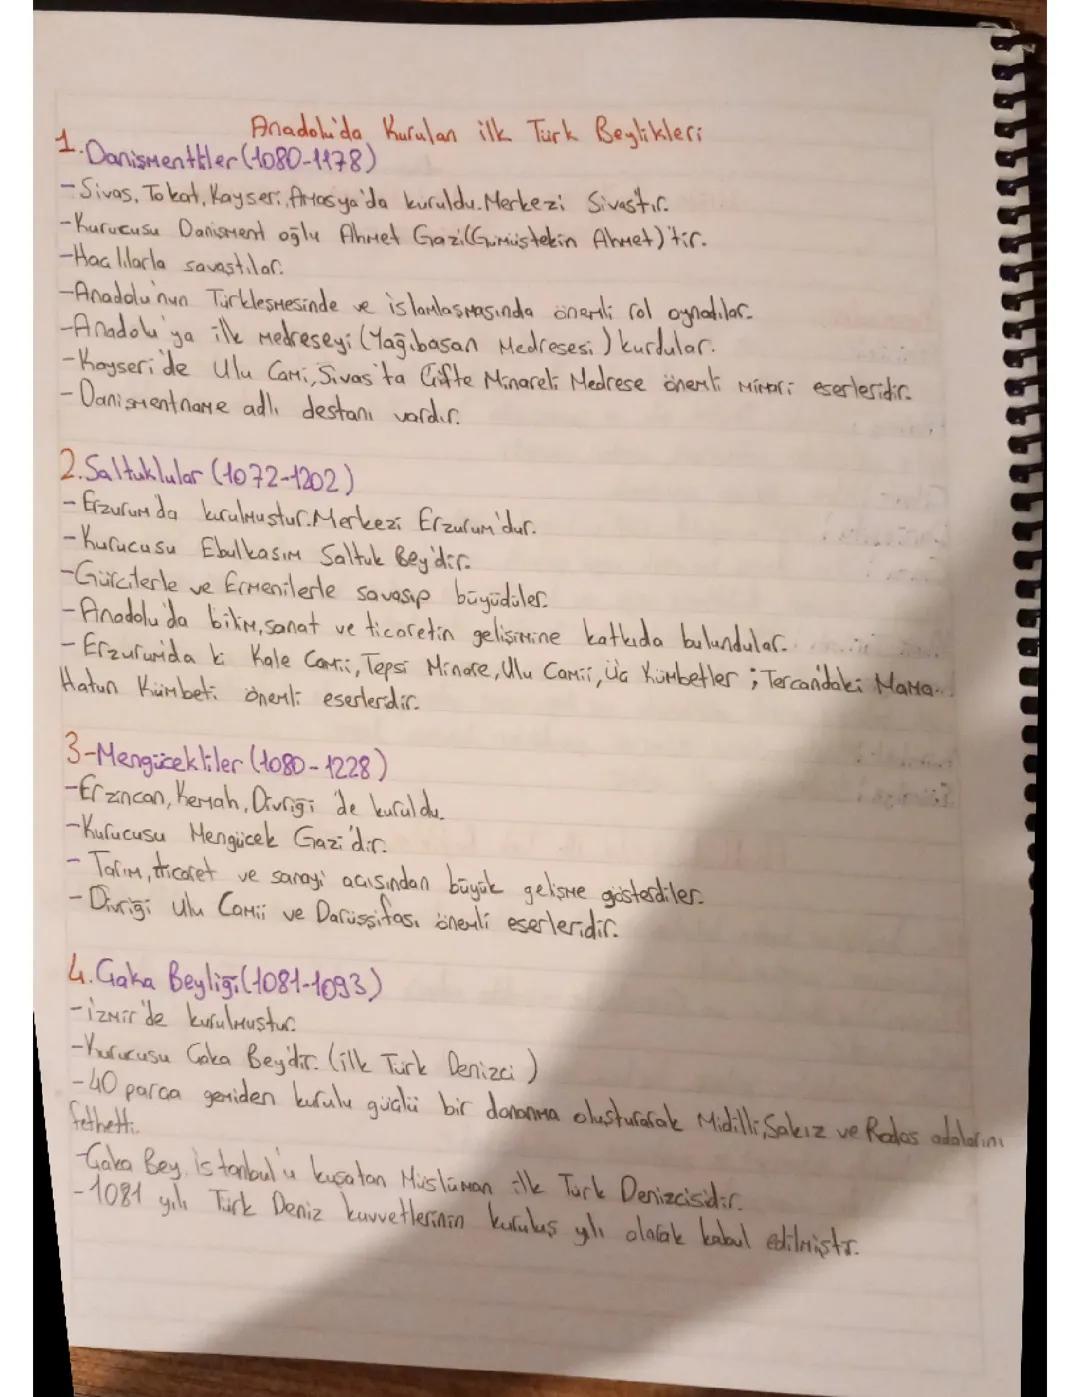 Anadolu'da Kurulan ilk Türk Beylikleri
1. Danişmentliler (1080-1178)
- Sivas, Tokat, Kayseri, Amasya'da kuruldu. Merkezi Sivastır.
- Kurucusu Danişment oğlu Ahmet Gazi (Gümüştekin Ahmet)'tir.
- Haçlılarla savaştılar.
- Anadolu'nun Türkleşmesinde ve islamlaşmasında önemli rol oynadılar.
- Anadolu'ya ilk medreseyi (Yağıbasan Medresesi) kurdular.
- Kayseri'de Ulu Cami, Sivas'ta Çifte Minareli Medrese önemli mimari eserleridir.
- Danişmentname adlı destanı vardır.
2. Saltuklular (1072-1202)
- Erzurum'da kurulmuştur. Merkezi Erzurum'dur.
- Kurucusu Ebulkasım Saltuk Bey'dir.
- Gürcülerle ve Ermenilerle savaşıp büyüdüler.
- Anadolu'da bilim, sanat ve ticaretin gelişimine katkıda bulundular.
- Erzurum'da ki Kale Camii, Tepsi Minare, Ulu Camii, Üç Kümbetler ; Tercan'daki Mama
Hatun Kümbeti önemli eserleridir.
3-Mengücekliler (1080-1228)
- Erzincan, Kemah, Divriği'de kuruldu.
- Kurucusu Mengücek Gazi'dir.
- Tarım, ticaret ve sanayi açısından büyük gelişme gösterdiler.
- Divriği Ulu Camii ve Darüşşifası önemli eserleridir.
4. Çaka Beyliği (1081-1093)
- izmir'de kurulmuştur.
- Kurucusu Çaka Bey'dir. (ilk Türk Denizci)
- 40 parça gemiden kurulu güçlü bir donanma oluşturarak Midilli, Sakız ve Rodos adalarını
fethetti.
- Çaka Bey, istanbul'u kuşatan Müslüman ilk Türk Denizcisidir.
- 1081 yılı Türk Deniz kuvvetlerinin kuruluş yılı olarak kabul edilmiştir.